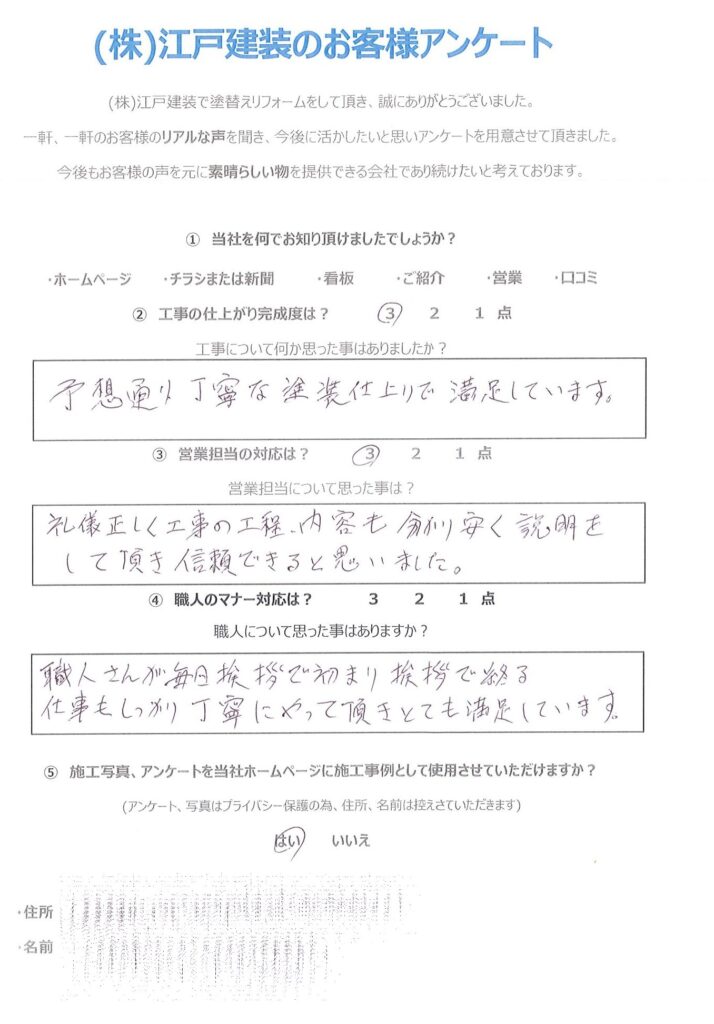 (株)江戸建装のお客様アンケート
(株)江戸建装で塗替えリフォームをして頂き、誠にありがとうございました。
一軒、一軒のお客様のリアルな声を聞き、今後に活かしたいと思いアンケートを用意させて頂きました。
今後もお客様の声を元に素晴らしい物を提供できる会社であり続けたいと考えております。
① 当社を何でお知り頂けましたでしょうか？
・ホームページ ・チラシまたは新聞 ・看板 ・ご紹介 ・営業 ・口コミ
② 工事の仕上がり完成度は？ 3 2 1 点
工事について何か思った事はありましたか？
予想通り丁寧な塗装仕上りで満足しています。
③ 営業担当の対応は？ 3 2 1 点
営業担当について思った事は？
礼儀正しく工事の工程、内容も分かり安く説明を
して頂き信頼できると思いました。
④ 職人のマナー対応は？ 3 2 1 点
職人について思った事はありますか？
職人さんが毎日挨拶で初まり挨拶で終る
仕事もしっかり丁寧にやって頂きとても満足しています。
⑤ 施工写真、アンケートを当社ホームページに施工事例として使用させていただけますか？
(アンケート、写真はプライバシー保護の為、住所、名前は控えさていただきます)
はい いいえ
・住所
・名前